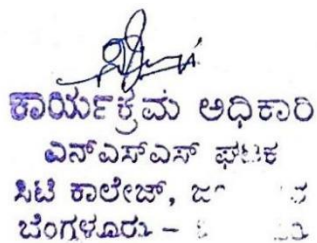 ಕಾರ್ಯಕ್ರಮ ಅಧಿಕಾರಿ
ಎನ್ಎಸ್ಎಸ್ ಘಟಕ
ಸಿಟಿ ಕಾಲೇಜ್,
ಬೆಂಗಳೂರು –